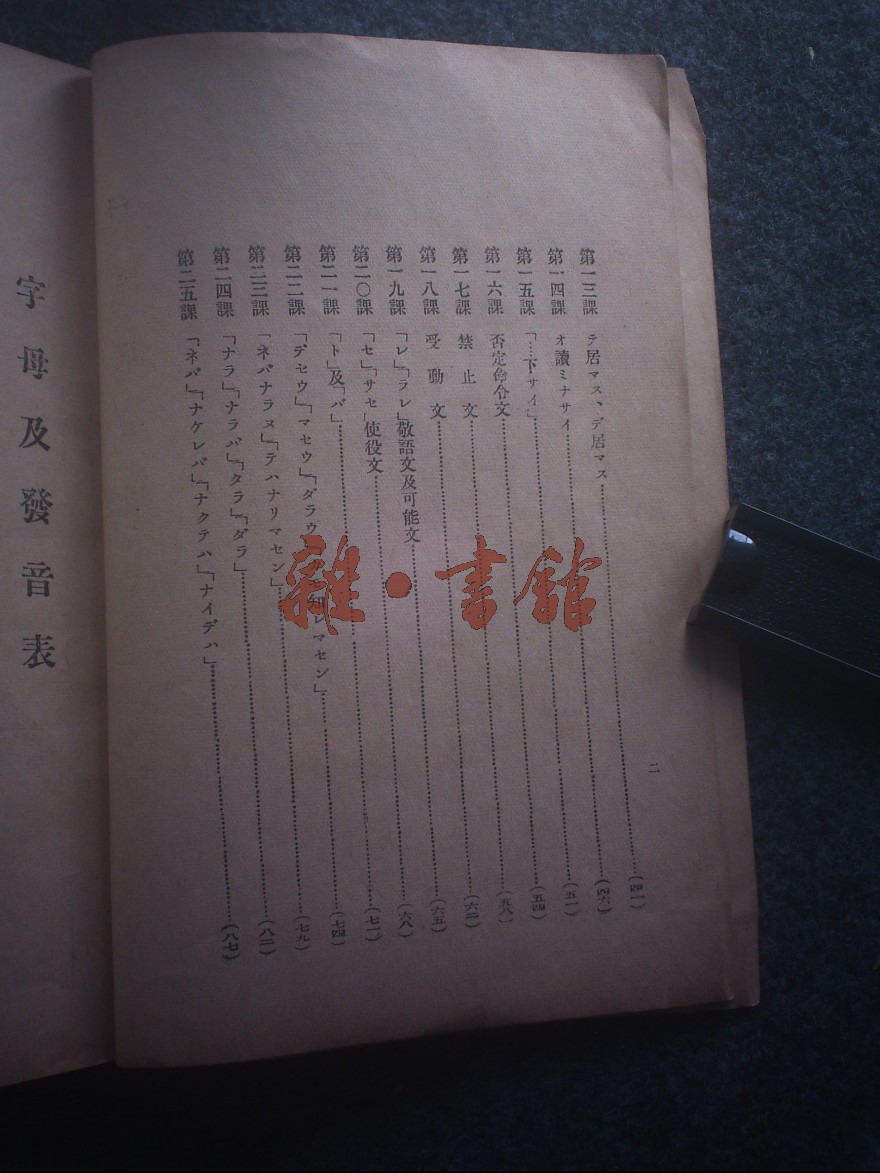 二
第一三課 テ居マス、デ居マス……(四一)
第一四課 オ讀ミナサイ……(四六)
第一五課 「…下サイ」……(五一)
第一六課 否定命令文……(五四)
第一七課 禁止文……(五八)
第一八課 受動文……(六二)
第一九課 「レ」「ラレ」敬語文及可能文……(六五)
第二〇課 「セ」「サセ」使役文……(六八)
第二一課 「ト」及「バ」……(七一)
第二二課 「デセウ」「マセウ」「ダラウ 知レマセン」……(七四)
第二三課 「ネバナラヌ」「テハナリマセン」……(七九)
第二四課 「ナラ」「ナラバ」「タラ」「ダラ」……(八二)
第二五課 「ネバ」「ナケレバ」「ナクテハ」「ナイデハ」……(八七)
字母及發音表
雜·書館